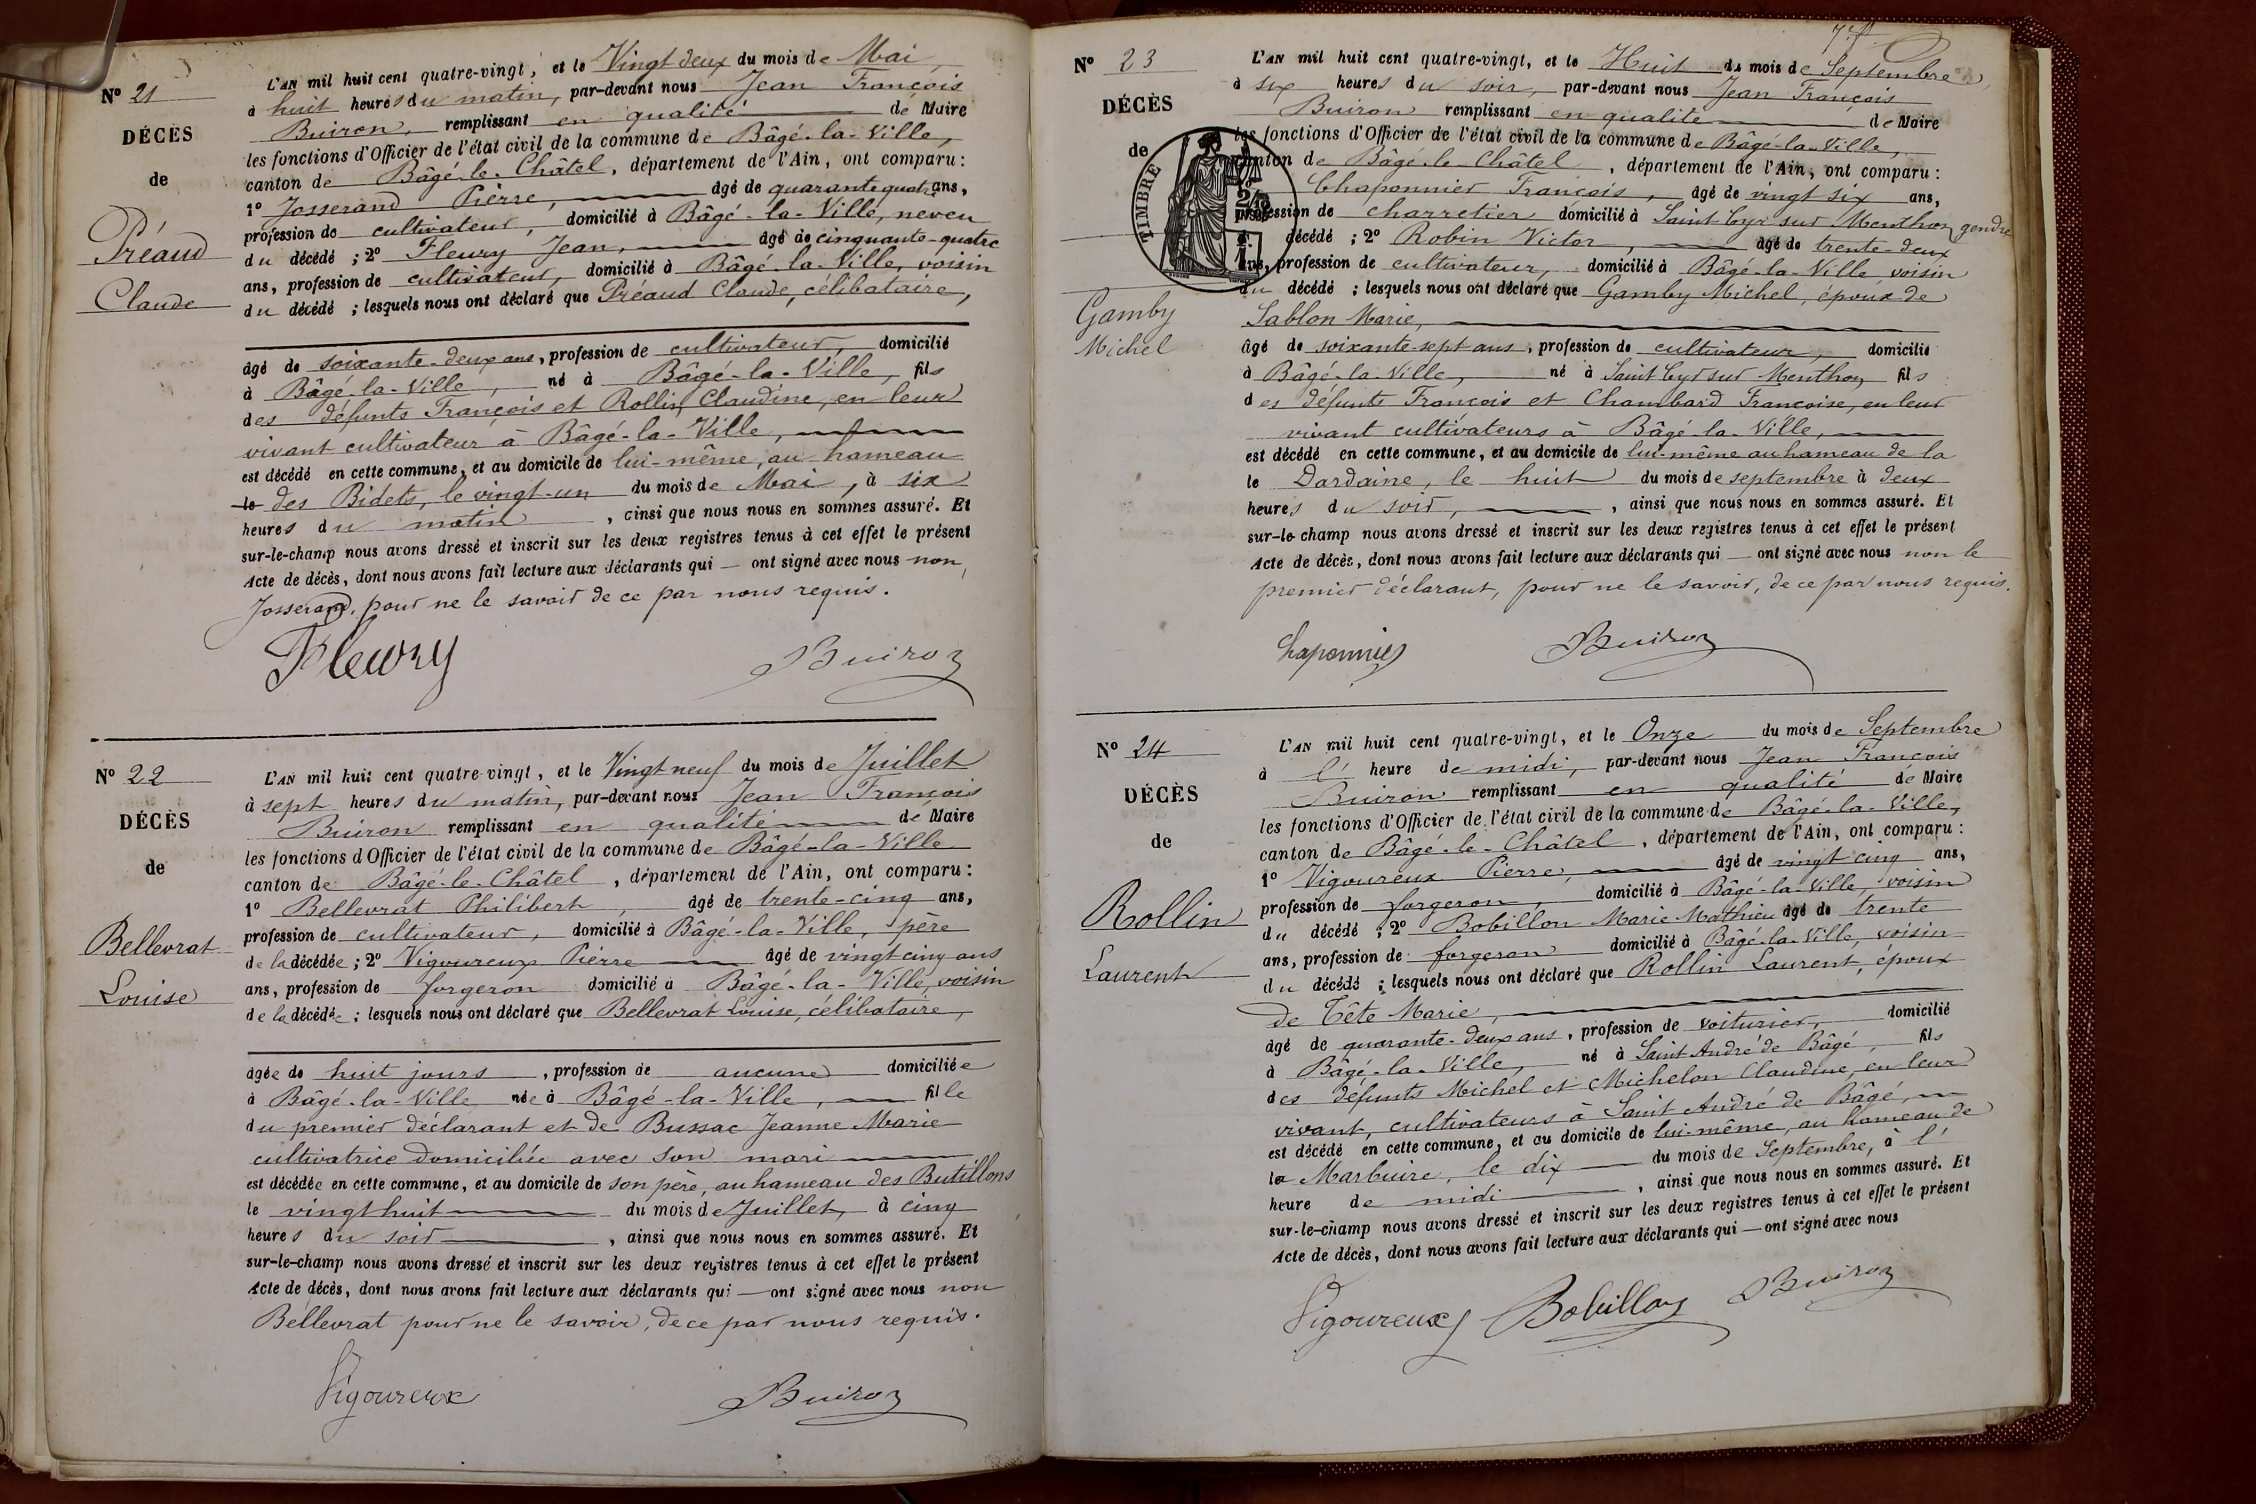 Nº 21
DÉCÈS
de
Préaud
Claude
L'AN mil huit cent quatre-vingt, et le Vingt deux du mois de Mai,
à huit heures du matin, par-devant nous Jean François
Buiron, remplissant en qualité de Maire
les fonctions d'Officier de l'état civil de la commune de Bâgé-la-Ville,
canton de Bâgé-le-Châtel, département de l'Ain, ont comparu :
1º Josserand Pierre, âgé de quarante quatre ans,
profession de cultivateur, domicilié à Bâgé-la-Ville, neveu
du décédé ; 2º Fleury Jean, âgé de cinquante-quatre
ans, profession de cultivateur, domicilié à Bâgé-la-Ville, voisin
du décédé ; lesquels nous ont déclaré que Préaud Claude, célibataire,
âgé de soixante-deux ans, profession de cultivateur, domicilié
à Bâgé-la-Ville, né à Bâgé-la-Ville, fils
des défunts François et Rollin Claudine, en leur
vivant cultivateur à Bâgé-la-Ville,
est décédé en cette commune, et au domicile de lui-même, au hameau
le des Bidets, le vingt-un du mois de Mai, à six
heures du matin, ainsi que nous nous en sommes assuré. Et
sur-le-champ nous avons dressé et inscrit sur les deux registres tenus à cet effet le présent
Acte de décès, dont nous avons fait lecture aux déclarants qui — ont signé avec nous non,
Josserand, pour ne le savoir de ce par nous requis.
Fleury Buiron
Nº 22
DÉCÈS
de
Bellevrat
Louise
L'AN mil huit cent quatre-vingt, et le Vingt neuf du mois de Juillet
à sept heures du matin, par-devant nous Jean François
Buiron remplissant en qualité de Maire
les fonctions d'Officier de l'état civil de la commune de Bâgé-la-Ville
canton de Bâgé-le-Châtel, département de l'Ain, ont comparu :
1º Bellevrat Philibert, âgé de trente-cinq ans,
profession de cultivateur, domicilié à Bâgé-la-Ville, père
de la décédée ; 2º Vigoureux Pierre âgé de vingt cinq ans
ans, profession de forgeron domicilié à Bâgé-la-Ville, voisin
de la décédée ; lesquels nous ont déclaré que Bellevrat Louise, célibataire,
âgée de huit jours, profession de aucune domiciliée
à Bâgé-la-Ville née à Bâgé-la-Ville, fille
du premier déclarant et de Bussac Jeanne Marie
cultivatrice domiciliée avec son mari
est décédée en cette commune, et au domicile de son père, au hameau des Butillons
le vingt huit du mois de Juillet, à cinq
heures du soir, ainsi que nous nous en sommes assuré. Et
sur-le-champ nous avons dressé et inscrit sur les deux registres tenus à cet effet le présent
Acte de décès, dont nous avons fait lecture aux déclarants qui — ont signé avec nous non
Bellevrat pour ne le savoir, de ce par nous requis.
Vigoureux Buiron
Nº 23
DÉCÈS
de
TIMBRE
Gamby
Michel
L'AN mil huit cent quatre-vingt, et le Huit du mois de Septembre,
à six heures du soir, par-devant nous Jean François
Buiron remplissant en qualité de Maire
les fonctions d'Officier de l'état civil de la commune de Bâgé-la-Ville,
canton de Bâgé-le-Châtel, département de l'Ain, ont comparu :
Chaponnier François, âgé de vingt six ans,
profession de charretier domicilié à Saint Cyr sur Menthon gendre
décédé ; 2º Robin Victor, âgé de trente-deux
ans, profession de cultivateur, domicilié à Bâgé-la-Ville voisin
du décédé ; lesquels nous ont déclaré que Gamby Michel, époux de
Sablon Marie,
âgé de soixante-sept ans, profession de cultivateur, domicilié
à Bâgé-la-Ville, né à Saint Cyr sur Menthon fils
des défunts François et Chambard Françoise, en leur
vivant cultivateurs à Bâgé-la-Ville,
est décédé en cette commune, et au domicile de lui-même au hameau de la
le Dardaine, le huit du mois de septembre à deux
heures du soir, ainsi que nous nous en sommes assuré. Et
sur-le-champ nous avons dressé et inscrit sur les deux registres tenus à cet effet le présent
Acte de décès, dont nous avons fait lecture aux déclarants qui — ont signé avec nous non le
premier déclarant, pour ne le savoir, de ce par nous requis.
Chaponnier Buiron
Nº 24
DÉCÈS
de
Rollin
Laurent
L'AN mil huit cent quatre-vingt, et le Onze du mois de Septembre
à l' heure de midi, par-devant nous Jean François
Buiron remplissant en qualité de Maire
les fonctions d'Officier de l'état civil de la commune de Bâgé-la-Ville,
canton de Bâgé-le-Châtel, département de l'Ain, ont comparu :
1º Vigoureux Pierre, âgé de vingt cinq ans,
profession de forgeron, domicilié à Bâgé-la-Ville, voisin
du décédé ; 2º Bobillon Marie Mathieu âgé de trente
ans, profession de forgeron domicilié à Bâgé-la-Ville, voisin
du décédé ; lesquels nous ont déclaré que Rollin Laurent, époux
de Tête Marie,
âgé de quarante-deux ans, profession de voiturier, domicilié
à Bâgé-la-Ville, né à Saint André de Bâgé, fils
des défunts Michel et Michelon Claudine, en leur
vivant, cultivateurs à Saint André de Bâgé,
est décédé en cette commune, et au domicile de lui-même, au hameau de
la Marbuire, le dix du mois de Septembre, à l'
heure de midi, ainsi que nous nous en sommes assuré. Et
sur-le-champ nous avons dressé et inscrit sur les deux registres tenus à cet effet le présent
Acte de décès, dont nous avons fait lecture aux déclarants qui — ont signé avec nous
Vigoureux Bobillon Buiron